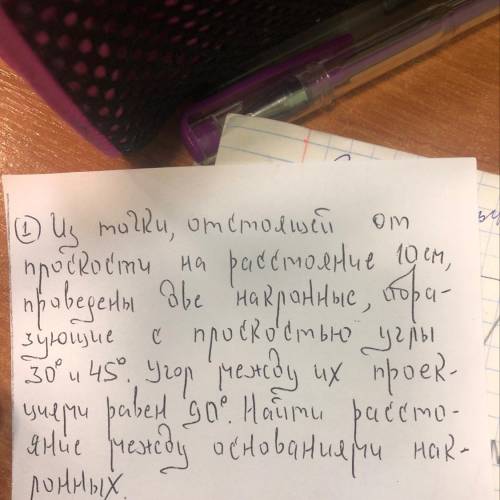 ① Из точки, отстоящей от
проскости на расстояние 10 см,
проведены две накронные, обра-
зующие с проскостью углы
30° и 45°. Угол между их проек-
циями равен 90°. Найти рассто-
яние между основаниями нак-
лонных.